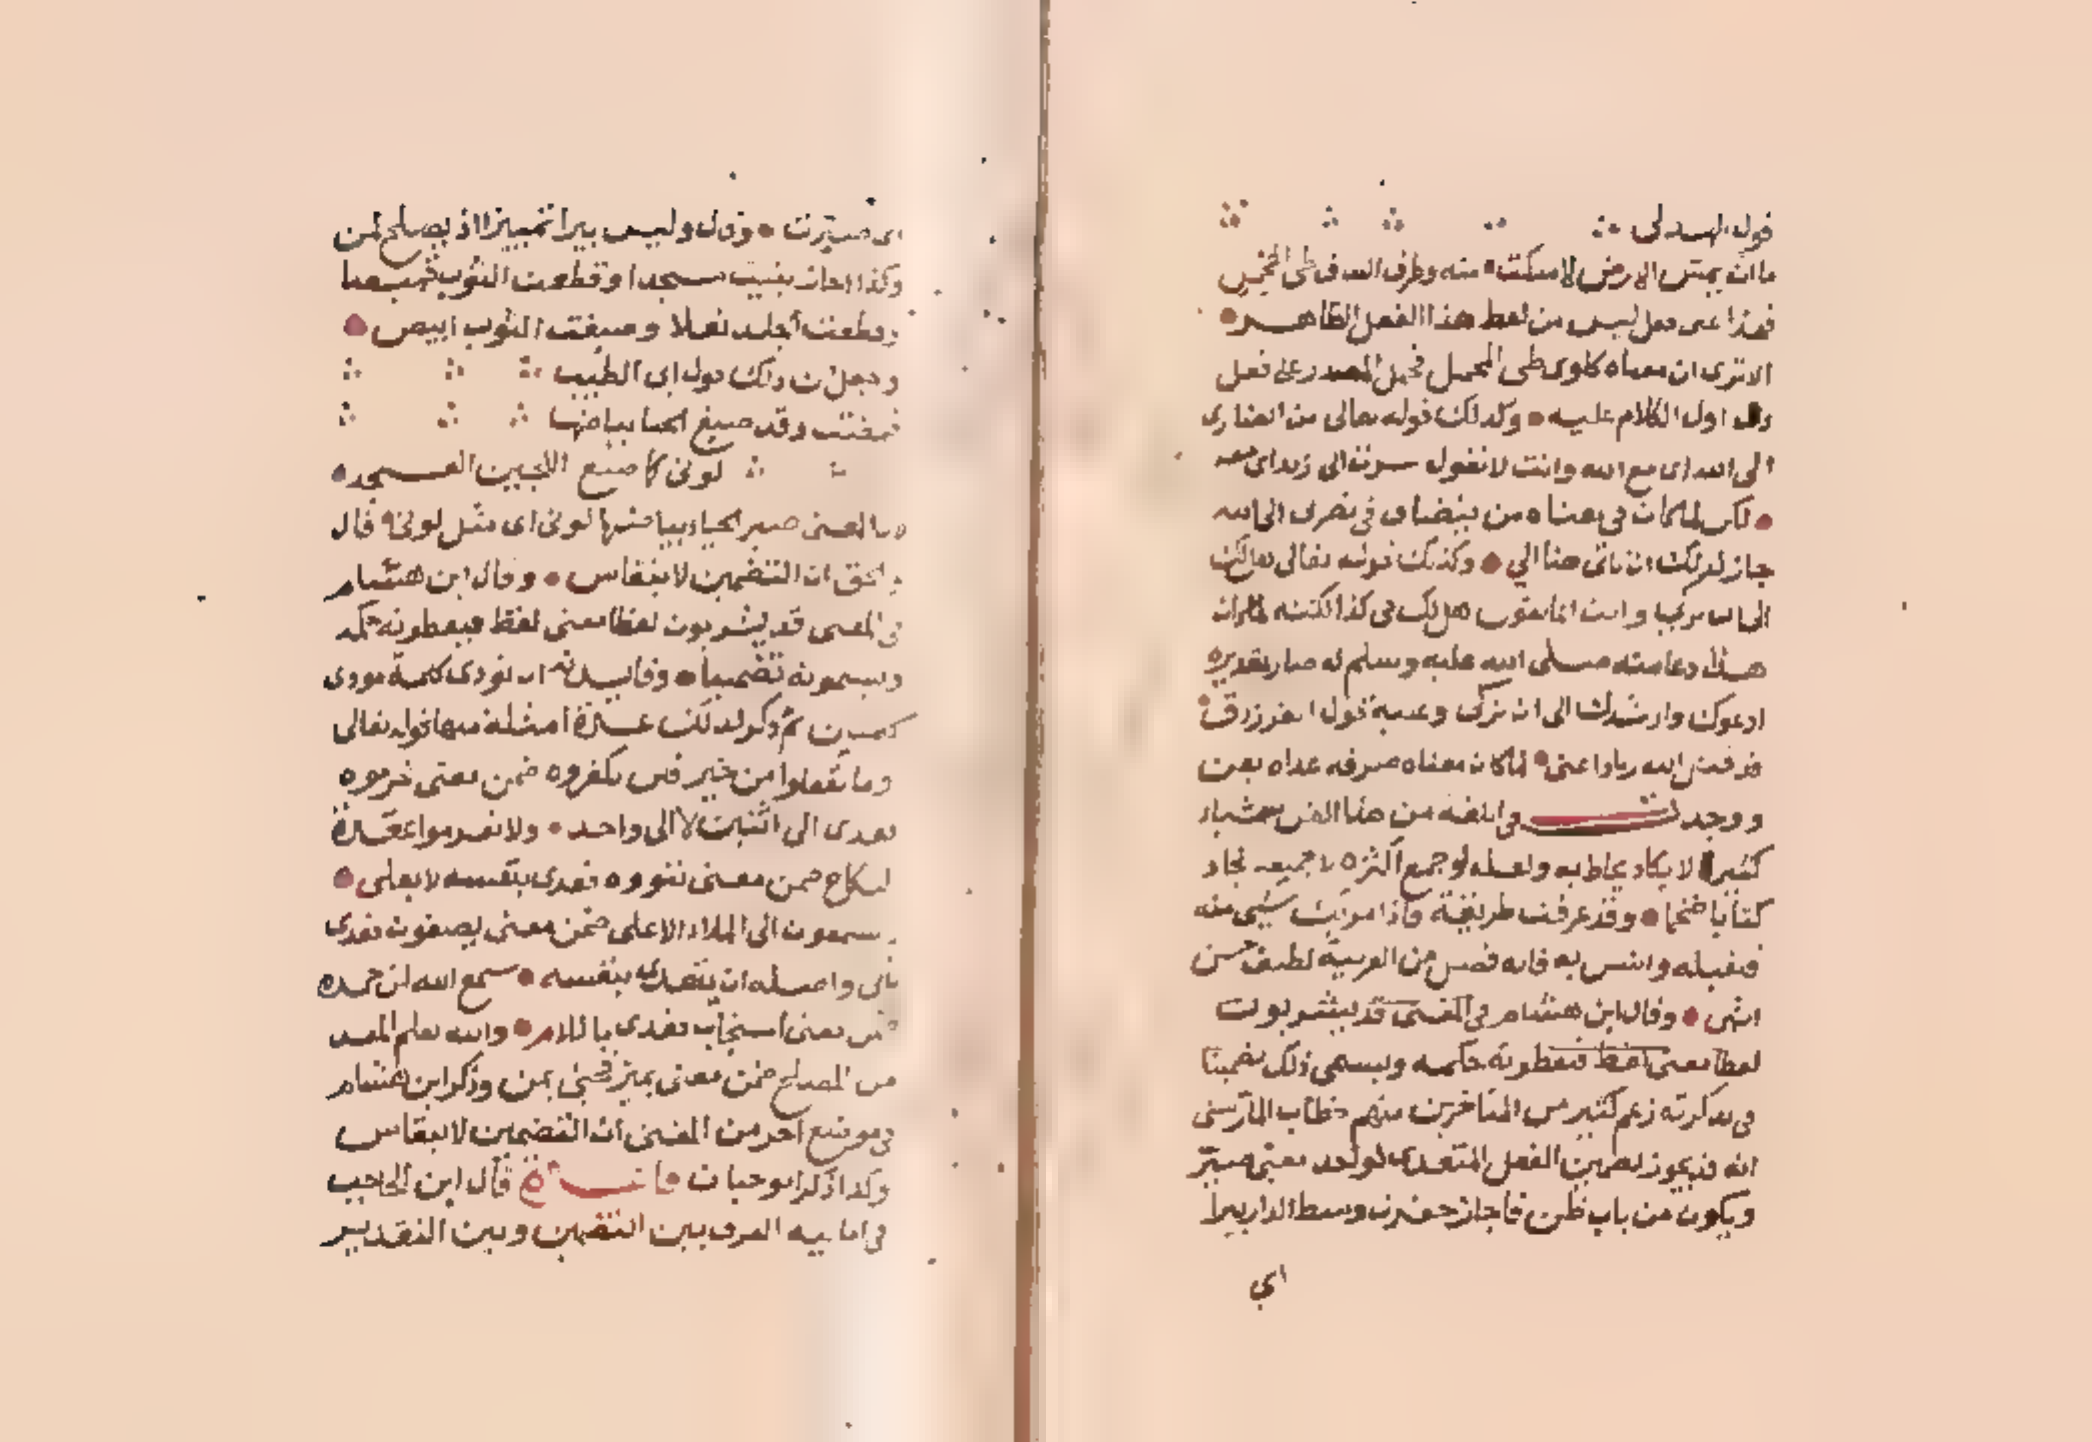 قول الهذلى
ما ان يمس الارض الا منكب منه وحرف الساق طى المحمل
فهذا على فعل ليس من لفظ هذا الفعل الظاهر
الا ترى ان معناه كاوى طى المحمل فحمل المصدر على فعل
دل اول الكلام عليه وكذلك قوله تعالى من انصارى
الى الله اى مع الله وانت لا تقول سرت الى زيد اى معه
لكن لما كان فى معناه من ينضاف فى نصرى الى الله
جاز لذلك ان تاتى هنا الى وكذلك قوله تعالى هل لك
الى ان تزكى وانت انما تقول هل لك فى كذا لكنه لما كان
هذا دعا منه صلى الله عليه وسلم له صار تقديره
ادعوك وارشدك الى ان تزكى وعليه قول الفرزدق
قد قتل الله زيادا عنى لما كان معناه صرفه عداه بعن
ووجدت فى اللغة من هذا الفن شياء
كثيرا لا يكاد يحاط به ولعله لو جمع اكثره لا جميعه لجاء
كتابا ضخما وقد عرفت طريقه فاذا مر بك شىء منه
فتقبله وانس به فانه فصل من العربية لطيف حسن
انتهى وقال ابن هشام فى المغنى قد يشربون
لفظا معنى لفظ فيعطونه حكمه ويسمى ذلك تضمينا
فى تذكرته زعم كثير من المتاخرين منهم خطاب الماردى
انه قد يجوز تضمين الفعل المتعدى لواحد معنى صير
ويكون من باب ظن فاجاز حفرت وسط الدار بيرا
اى
اى صيرت وقال وليس بيرا تمييزا اذ يصلح لمن
وكذا اجاز بنيت مسجدا وقطعت الثوب قميصا
وقطعت الجلد نعلا وصبغت الثوب ابيض
وجعل من ذلك قول ابى الطيب
فمضت وقد صبغ الحيا بياضها
لونى كما صبغ اللجين العسجد
لان المعنى صير الحياء بياضها لونى اى مثل لونى قال
والحق ان التضمين لا ينقاس وقال ابن هشام
فى المغنى قد يشربون لفظا معنى لفظ فيعطونه حكمه
ويسمونه تضمينا وفايدته ان تؤدى كلمة مودى
كلمتين ثم ذكر لذلك عدة امثلة منها قوله تعالى
وما تفعلوا من خير فلن تكفروه ضمن معنى تحرموه
فعدى الى اثنين لا الى واحد ولا تعزموا عقدة
النكاح ضمن معنى تنووه فعدى بنفسه لا بعلى
لا يسمعون الى الملاء الاعلى ضمن معنى يصغون فعدى
بالى واصله ان يتعدى بنفسه سمع الله لمن حمده
ضمن معنى استجاب فعدى باللام والله يعلم المفسد
من المصلح ضمن معنى يميز فجئ بمن وذكر ابن هشام
فى موضع اخر من المغنى ان التضمين لا ينقاس
وكذا ذكر ابو حيان قال ابن الحاجب
فى اماليه الفرق بين التضمين وبين التقدير